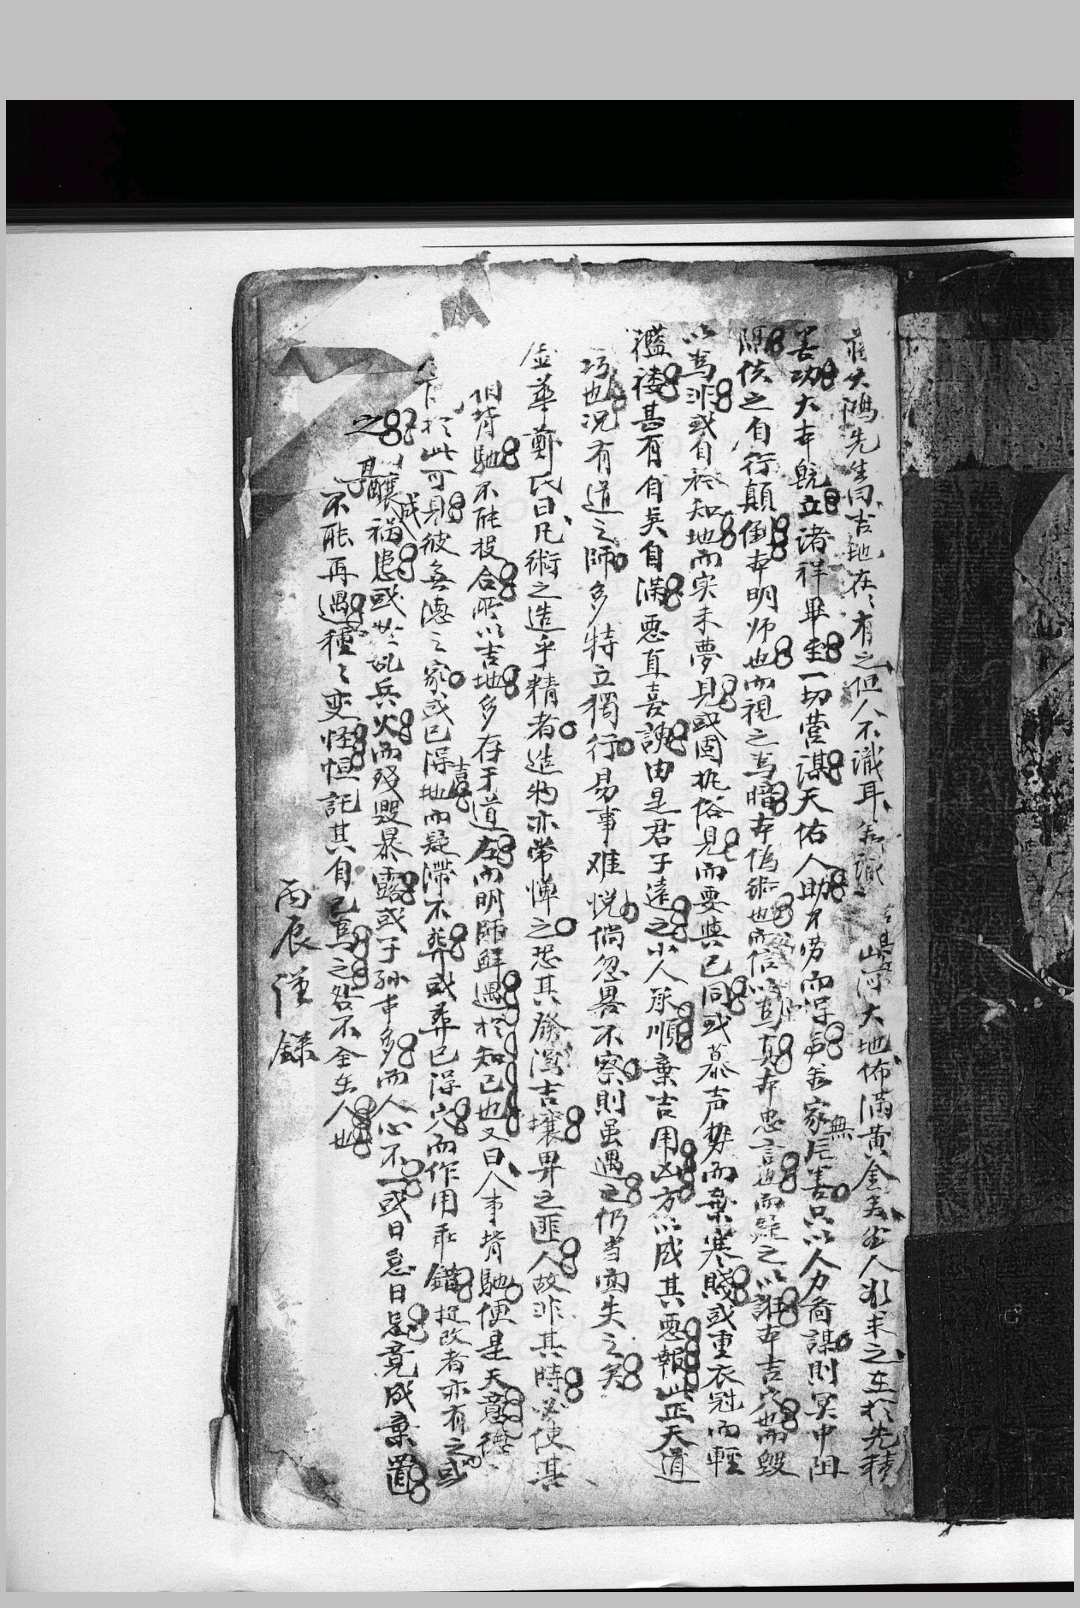 蔣大鴻先生曰吉地在在有之但人不識耳 山河大地佈滿黃金 人求之在於先積
善功大本既立諸祥畢至一切營謀天佑人助不勞而得 若家无善只以人力啇謀則冥中阻
隔使之自行顛倒本明师也而視之為暗本偽術也而信以為真本忠言也而疑之以誹本吉穴也而毀
以為非或自矜知地而实未夢見或固執俗見而要與己同或慕声势而棄寒賤或重衣冠而輕
襤褸甚有自矣自滿惡直喜諛由是君子遠之小人承順棄吉用凶方以成其惡報此正天道
巧也况有道之師多特立獨行易事难悦倘忽畧不察則虽遇之仍当面失之矣
金華鄭氏曰凡術之造乎精者造物亦常惮之恐其發洩吉壤畀之匪人故非其時必使其
相背馳不能投合所以吉地多存于道左而明師鮮遇於知己也又曰人事背馳便是天意
於此可見彼無德之家或已得吉地而疑滯不葬或葬已得穴而作用乖錯 改者亦有之或
釀成禍患或於乱兵火而殘毀暴露或子孙中多而人心不一或日怠日 竟成棄置
不能再遇種種变怪恒託其自己為之咎不全在人也
丙辰谨錄